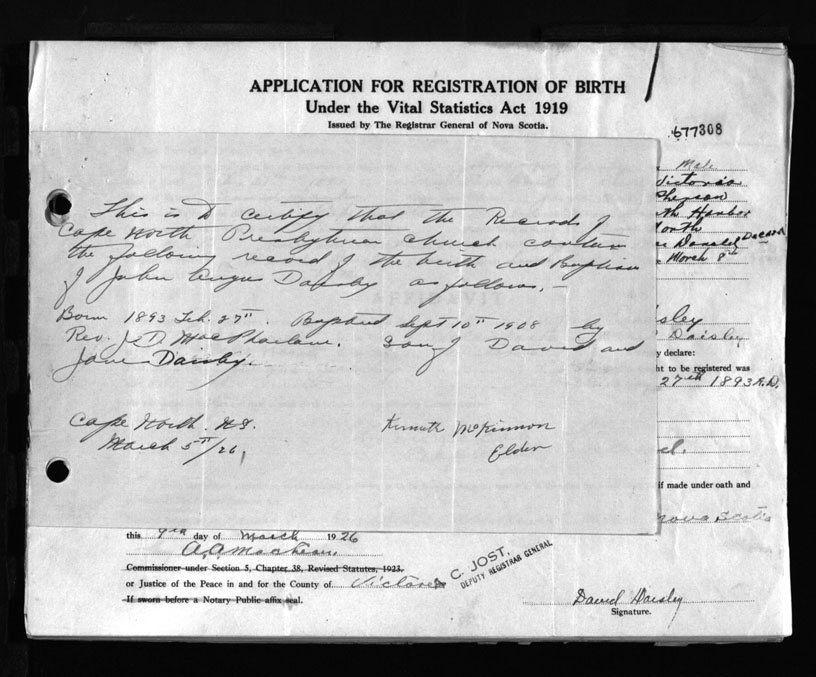 APPLICATION FOR REGISTRATION OF BIRTH
Under the Vital Statistics Act 1919
Issued by The Registrar General of Nova Scotia.
677308
Male
Victoria
Harbor
North
Donald
March 8th
This is to certify that the Records of
Cape North Presbyterian Church contain
the following record of the birth and Baptism
of John Angus Daisley as follows. -
Born 1893 Feb. 27". Baptised Sept 10th 1908 by
Rev. J. D. MacPharlane. Son of David and
Jane Daisley.
Cape North. N.S.
March 5th/26.
Kenneth McKinnon
Elder
AFFIDAVIT
Daisley
y declare:
ht to be registered was
27th 1893 A.D.
if made under oath and
Nova Scotia
this 9th day of March 1926
A. A. MacKean
Commissioner under Section 5, Chapter 38, Revised Statutes, 1923.
or Justice of the Peace in and for the County of Victoria
If sworn before a Notary Public affix seal.
C. JOST,
DEPUTY REGISTRAR GENERAL
David Daisley
Signature.